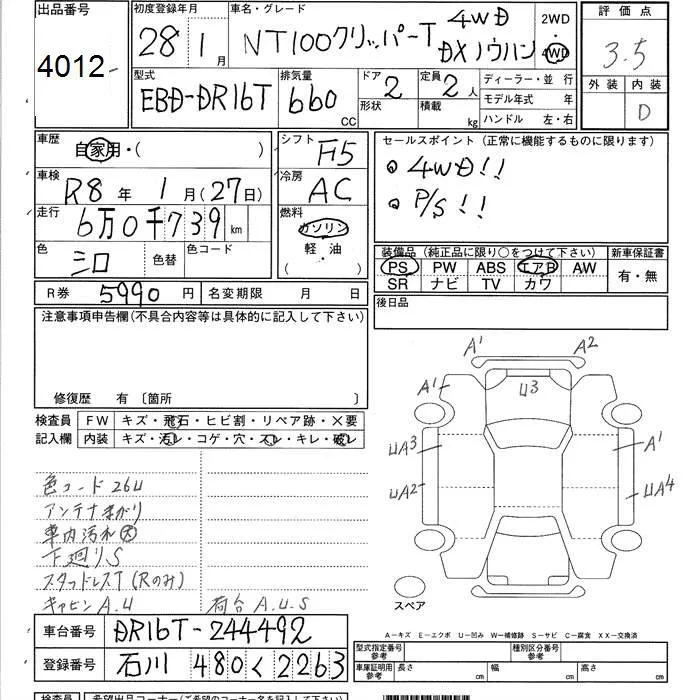 出品番号
4012-
初度登録年月
28年1月
車名・グレード
NT100クリッパーT 4WD DXノウハン
2WD・4WD
評価点
3.5
外装 内装
D
型式
EBD-DR16T
排気量
660 CC
ドア 2
形状
定員 2人
積載 kg
ディーラー・並行
モデル年式 年
ハンドル 左・右
車歴
自家用・( )
車検
R8年1月(27日)
走行
6万0千739 km
色
シロ
色替
色コード
シフト
F5
冷房
AC
燃料
ガソリン
軽・油
( ・ )
セールスポイント(正常に機能するものに限ります)
◎4WD!!
◎P/S!!
装備品(純正品に限り○をつけて下さい)
PS PW ABS エアB AW
SR ナビ TV カワ
新車保証書
有・無
後日品
R券 5990円
名変期限 月 日
注意事項申告欄(不具合内容等は具体的に記入して下さい)
修復歴 有 〔箇所 〕
検査員記入欄
FW キズ・飛石・ヒビ割・リペア跡・×要
内装 キズ・汚レ・コゲ・穴・スレ・キレ・破レ
色コード 26U
アンテナまがり
車内汚れ大
下廻りS
スタッドレスT(Rのみ)
キャビンA.U
荷台A.U.S
A1 A2
A1 U3
UA3 A1
UA2 UA4
スペア
A－キズ E－エクボ U－凹み W－補修跡 S－サビ C－腐食 XX－交換済
車台番号 DR16T-244492
登録番号 石川 480く2263
型式指定番号 参考
種別区分番号 参考
車庫証明用 参考
長さ cm 幅 cm 高さ cm
検査員
希望出品コーナー(ご希望のコーナー名を